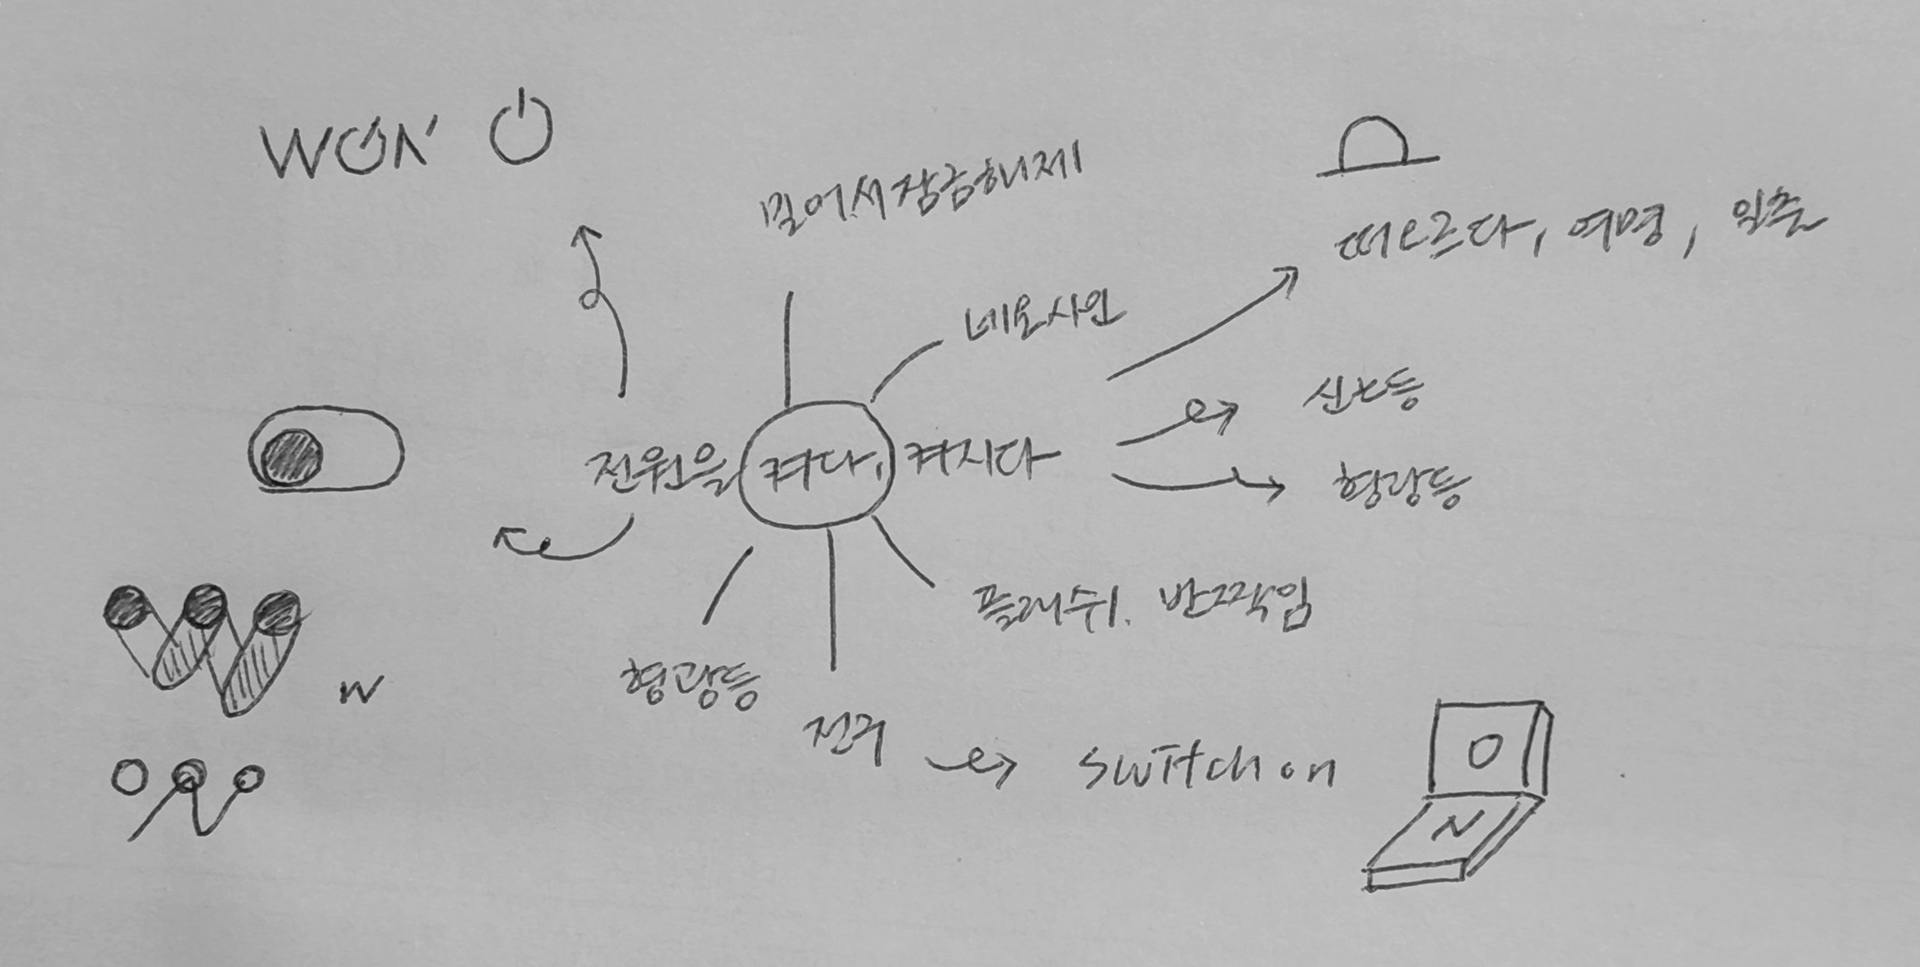 WON
밀어서잠금해제
떠오르다, 여명, 일출
네온사인
신호등
전원을 켜다, 켜지다
형광등
플래쉬. 반짝임
형광등
W
전구
switch on
O
N